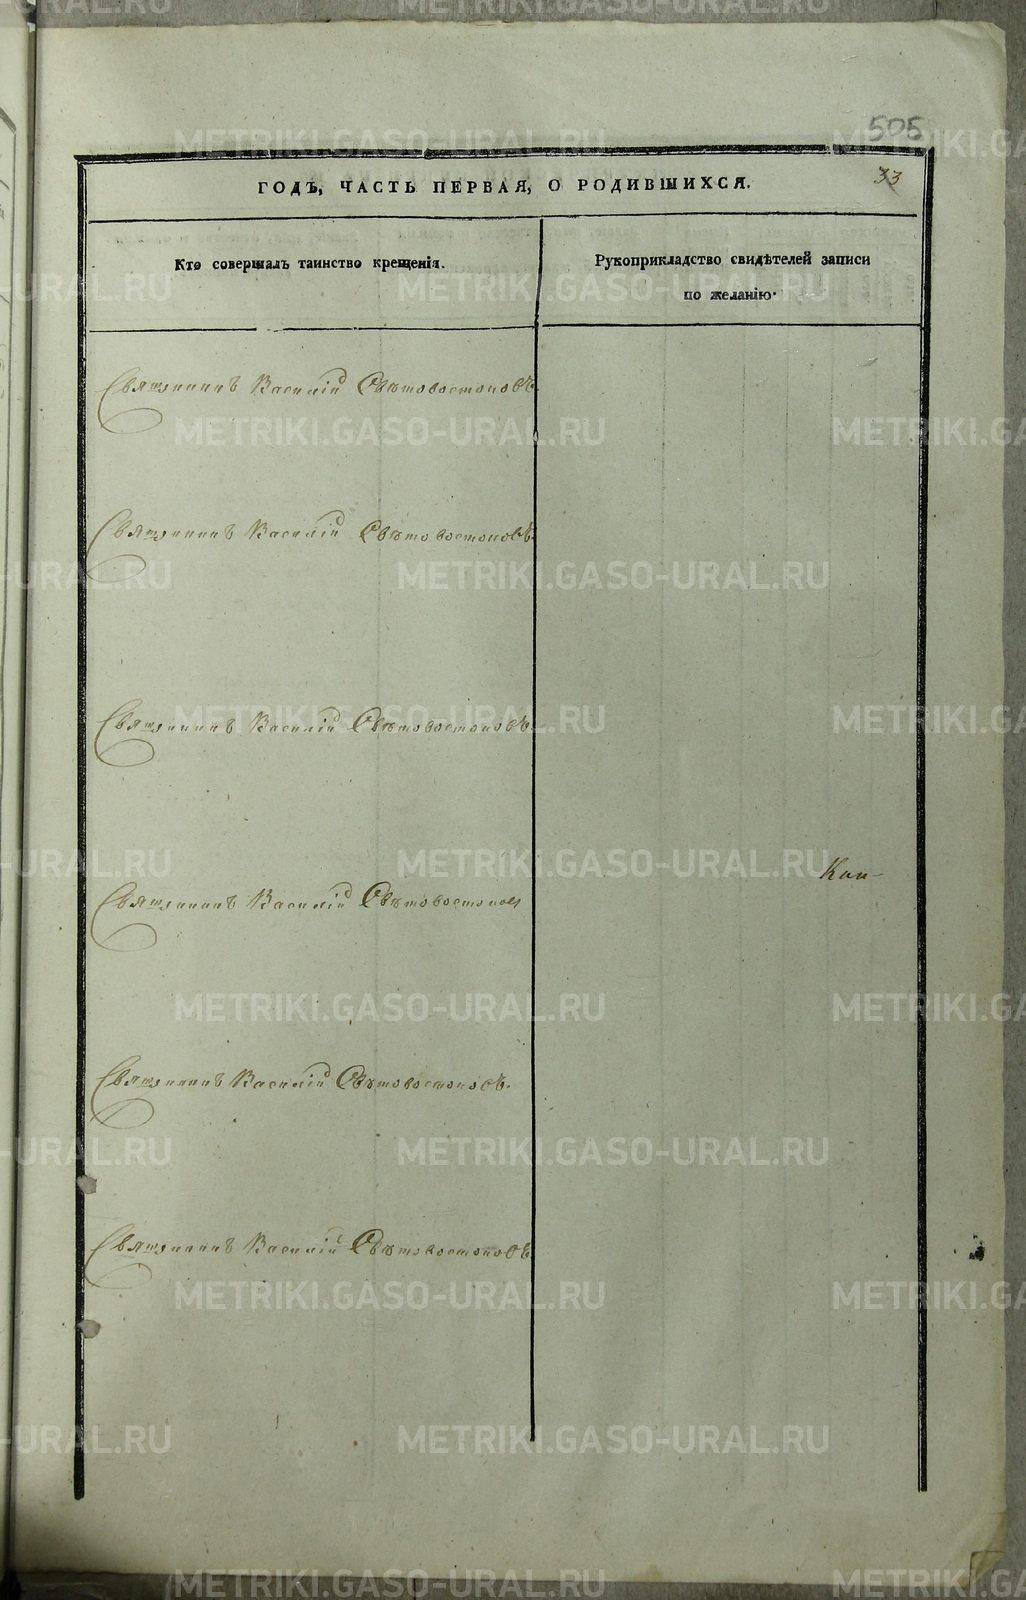 505
33
ГОДЪ, ЧАСТЬ ПЕРВАЯ, О РОДИВШИХСЯ.
Кто совершалъ таинство крещенія.
Рукоприкладство свидѣтелей записи
по желанію.
Священникъ Василій Свѣтовостоковъ.
Священникъ Василій Свѣтовостоковъ.
Священникъ Василій Свѣтовостоковъ.
Священникъ Василій Свѣтовостоковъ
Священникъ Василій Свѣтовостоковъ.
Священникъ Василій Свѣтовостоковъ
METRIKI.GASO-URAL.RU